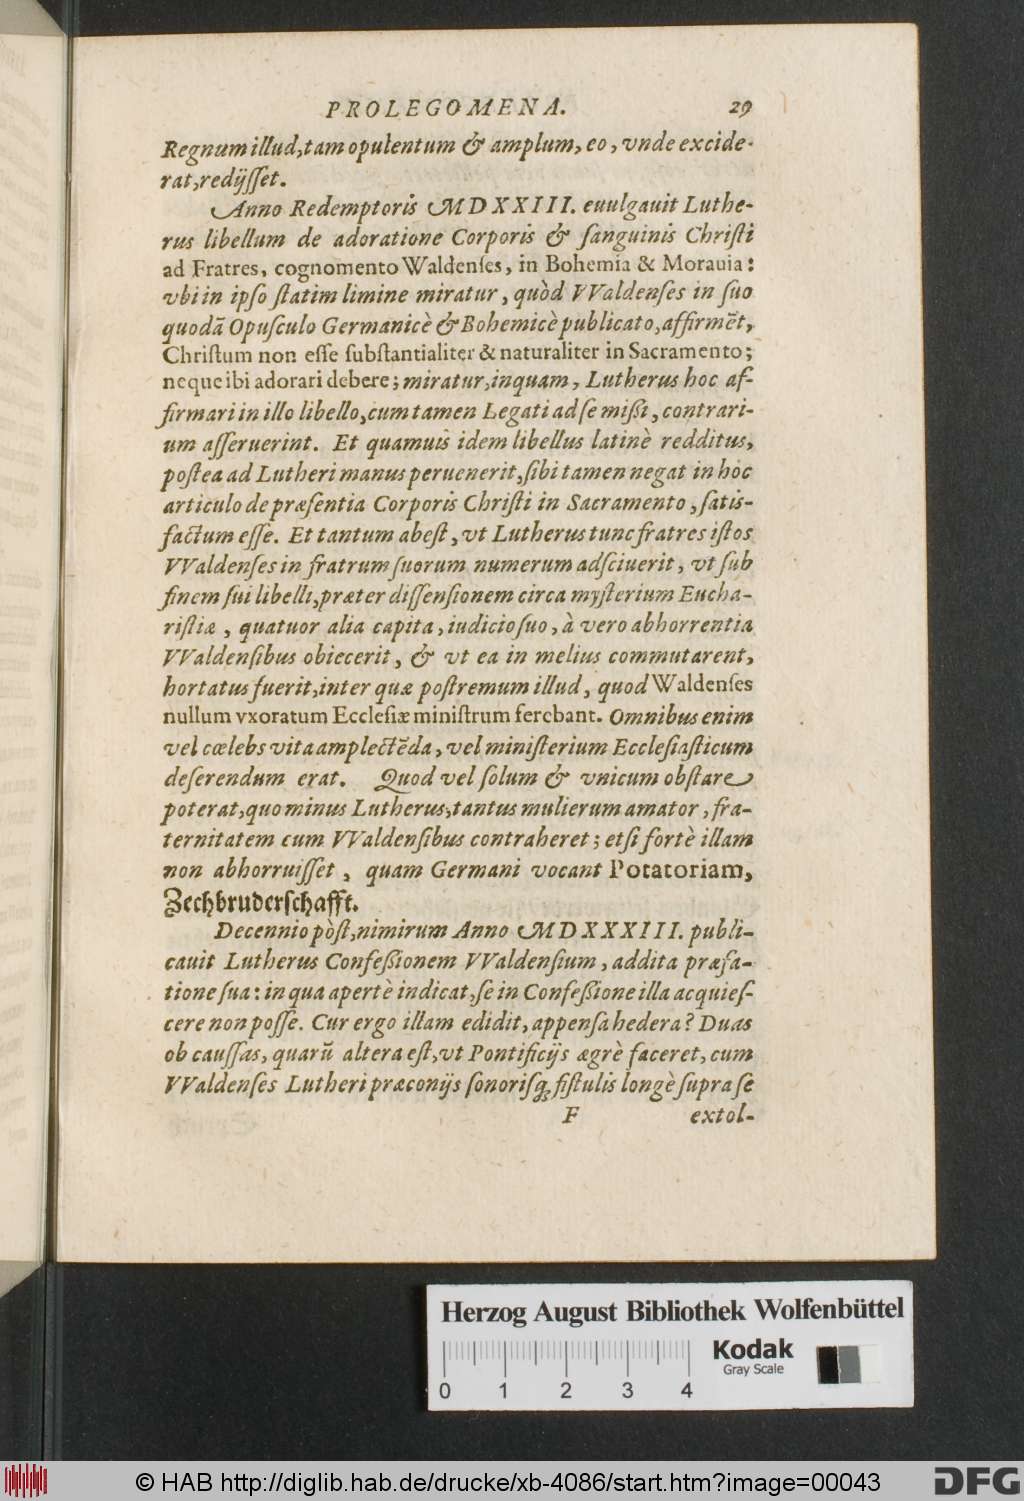 PROLEGOMENA. 29
Regnum illud, tam opulentum & amplum, eo, vnde excide-
rat, redijſſet.
Anno Redemptoris MDXXIII. euulgauit Luthe-
rus libellum de adoratione Corporis & ſanguinis Chriſti
ad Fratres, cognomento Waldenſes, in Bohemia & Morauia:
vbi in ipſo ſtatim limine miratur, quòd VValdenſes in ſuo
quodã Opuſculo Germanicè & Bohemicè publicato, affirmẽt,
Chriſtum non eſſe ſubſtantialiter & naturaliter in Sacramento;
neque ibi adorari debere; miratur, inquam, Lutherus hoc af-
firmari in illo libello, cum tamen Legati ad ſe mißi, contrari-
um aſſeruerint. Et quamuis idem libellus latinè redditus,
poſtea ad Lutheri manus peruenerit, ſibi tamen negat in hoc
articulo de præſentia Corporis Chriſti in Sacramento, ſatis-
factum eſſe. Et tantum abeſt, vt Lutherus tunc fratres iſtos
VValdenſes in fratrum ſuorum numerum adſciuerit, vt ſub
finem ſui libelli, præter diſſenſionem circa myſterium Eucha-
riſtiæ, quatuor alia capita, iudicio ſuo, à vero abhorrentia
VValdenſibus obiecerit, & vt ea in melius commutarent,
hortatus fuerit, inter quæ poſtremum illud, quod Waldenſes
nullum vxoratum Eccleſiæ miniſtrum ferebant. Omnibus enim
vel cœlebs vita amplectẽda, vel miniſterium Eccleſiaſticum
deſerendum erat. Quod vel ſolum & vnicum obſtare
poterat, quo minus Lutherus, tantus mulierum amator, fra-
ternitatem cum VValdenſibus contraheret; etſi fortè illam
non abhorruiſſet, quam Germani vocant Potatoriam,
Zechbruderſchafft.
Decennio pòſt, nimirum Anno MDXXXIII. publi-
cauit Lutherus Confeßionem VValdenſium, addita præfa-
tione ſua: in qua apertè indicat, ſe in Confeßione illa acquieſ-
cere non poſſe. Cur ergo illam edidit, appenſa hedera? Duas
ob cauſſas, quarũ altera eſt, vt Pontificijs ægrè faceret, cum
VValdenſes Lutheri præconijs ſonoriſq; fiſtulis longè ſupra ſe
F extol-
Herzog August Bibliothek Wolfenbüttel
Kodak
Gray Scale
0 1 2 3 4
© HAB http://diglib.hab.de/drucke/xb-4086/start.htm?image=00043
DFG